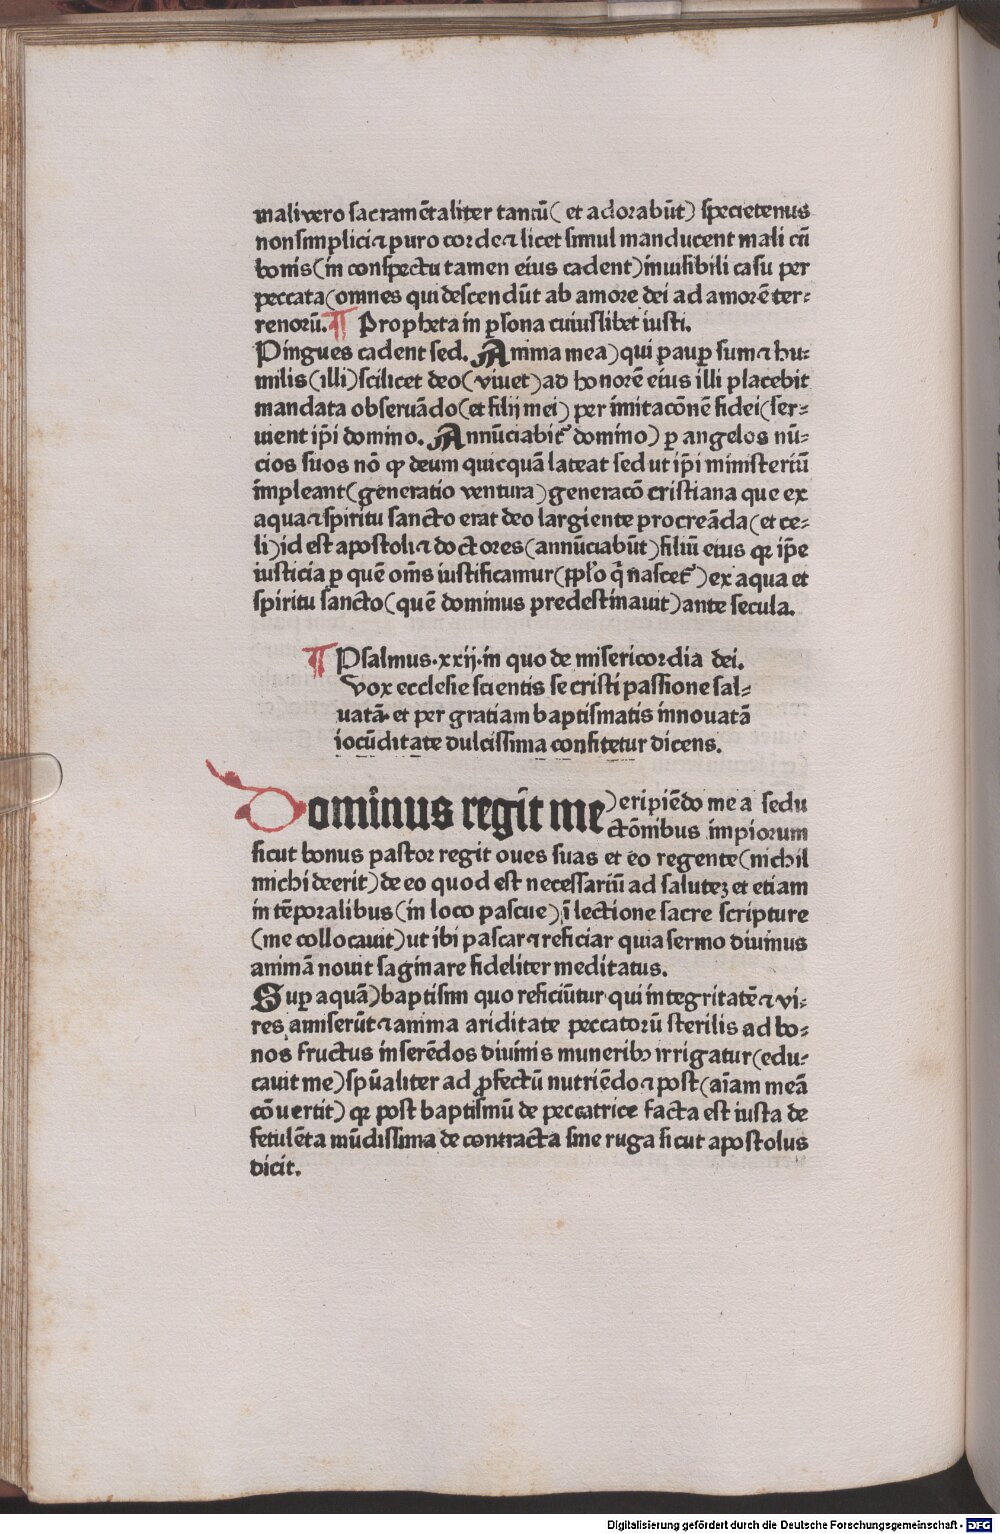 mali vero sacramētaliter tantū( et adorabūt) specietenus
non simplici ⁊ puro corde ⁊ licet simul manducent mali cū
bonis(in conspectu tamen eius cadent)inuisibili casu per
peccata(omnes qui descendūt ab amore dei ad amorē ter⸗
renorū. ¶ Propheta in ꝑsona cuiuslibet iusti.
Pingues cadent sed. Anima mea)qui pauꝑ sum ⁊ hu⸗
milis(illi)scilicet deo(viuet)ad honorē eius illi placebit
mandata obseruādo(et filij mei) per imitacōnē fidei(ser⸗
uient ip̄i domino. Annūciabit᷑ domino) ꝑ angelos nū⸗
cios suos nō ꝙ deum quicquā lateat sed ut ip̄i ministeriū
impleant(generatio ventura)generacō cristiana que ex
aqua ⁊ spiritu sancto erat deo largiente procreāda(et ce⸗
li)id est apostoli ⁊ doctores(annūciabūt)filiū eius qꝛ ip̄e
iusticia ꝑ quē om̄s iustificamur(pp̄lo q̄ nascet᷑)ex aqua et
spiritu sancto(quē dominus predestinauit)ante secula.
¶ Psalmus.xxij.in quo de misericordia dei.
Vox ecclesie scientis se cristi passione sal⸗
uatā.et per gratiam baptismatis innouatā
iocūditate dulcissima confitetur dicens.
Dominus regit me)eripiēdo me a sedu
ctōnibus impiorum
sicut bonus pastor regit oues suas et eo regente(nichil
michi deerit)de eo quod est necessariū ad salutez et etiam
in tēporalibus(in loco pascue)ī lectione sacre scripture
(me collocauit)ut ibi pascar ⁊ reficiar quia sermo diuinus
animā nouit saginare fideliter meditatus.
Suꝑ aquā)baptismi quo reficiūtur qui integritatē ⁊ vi⸗
res amiserūt ⁊ anima ariditate peccatorū sterilis ad bo⸗
nos fructus inserēdos diuinis muneribꝫ irrigatur(edu⸗
cauit me)sp̄ualiter ad ꝓfectū nutriēdo ⁊ post(aīam meā
cōuertit) qꝛ post baptismū de peccatrice facta est iusta de
fetulēta mūdissima de contracta sine ruga sicut apostolus
dicit.
Digitalisierung gefördert durch die Deutsche Forschungsgemeinschaft - DFG